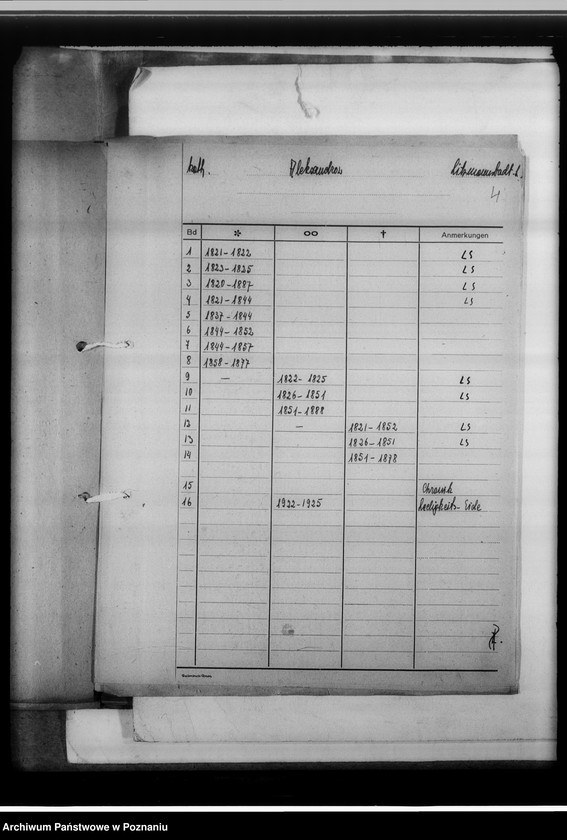 kath. Alexandrow Litzmannstadt-L.
4
Bd * ∞ † Anmerkungen
1 1821-1822 LS
2 1823-1825 LS
3 1820-1887 LS
4 1821-1844 LS
5 1837-1844
6 1844-1852
7 1844-1857
8 1858-1877
9 — 1822-1825 LS
10 1826-1851 LS
11 1851-1888
12 — 1821-1852 LS
13 1826-1851 LS
14 1851-1878
15 Chronik
16 1922-1925 Ledigkeits-Eide
Archiwum Państwowe w Poznaniu